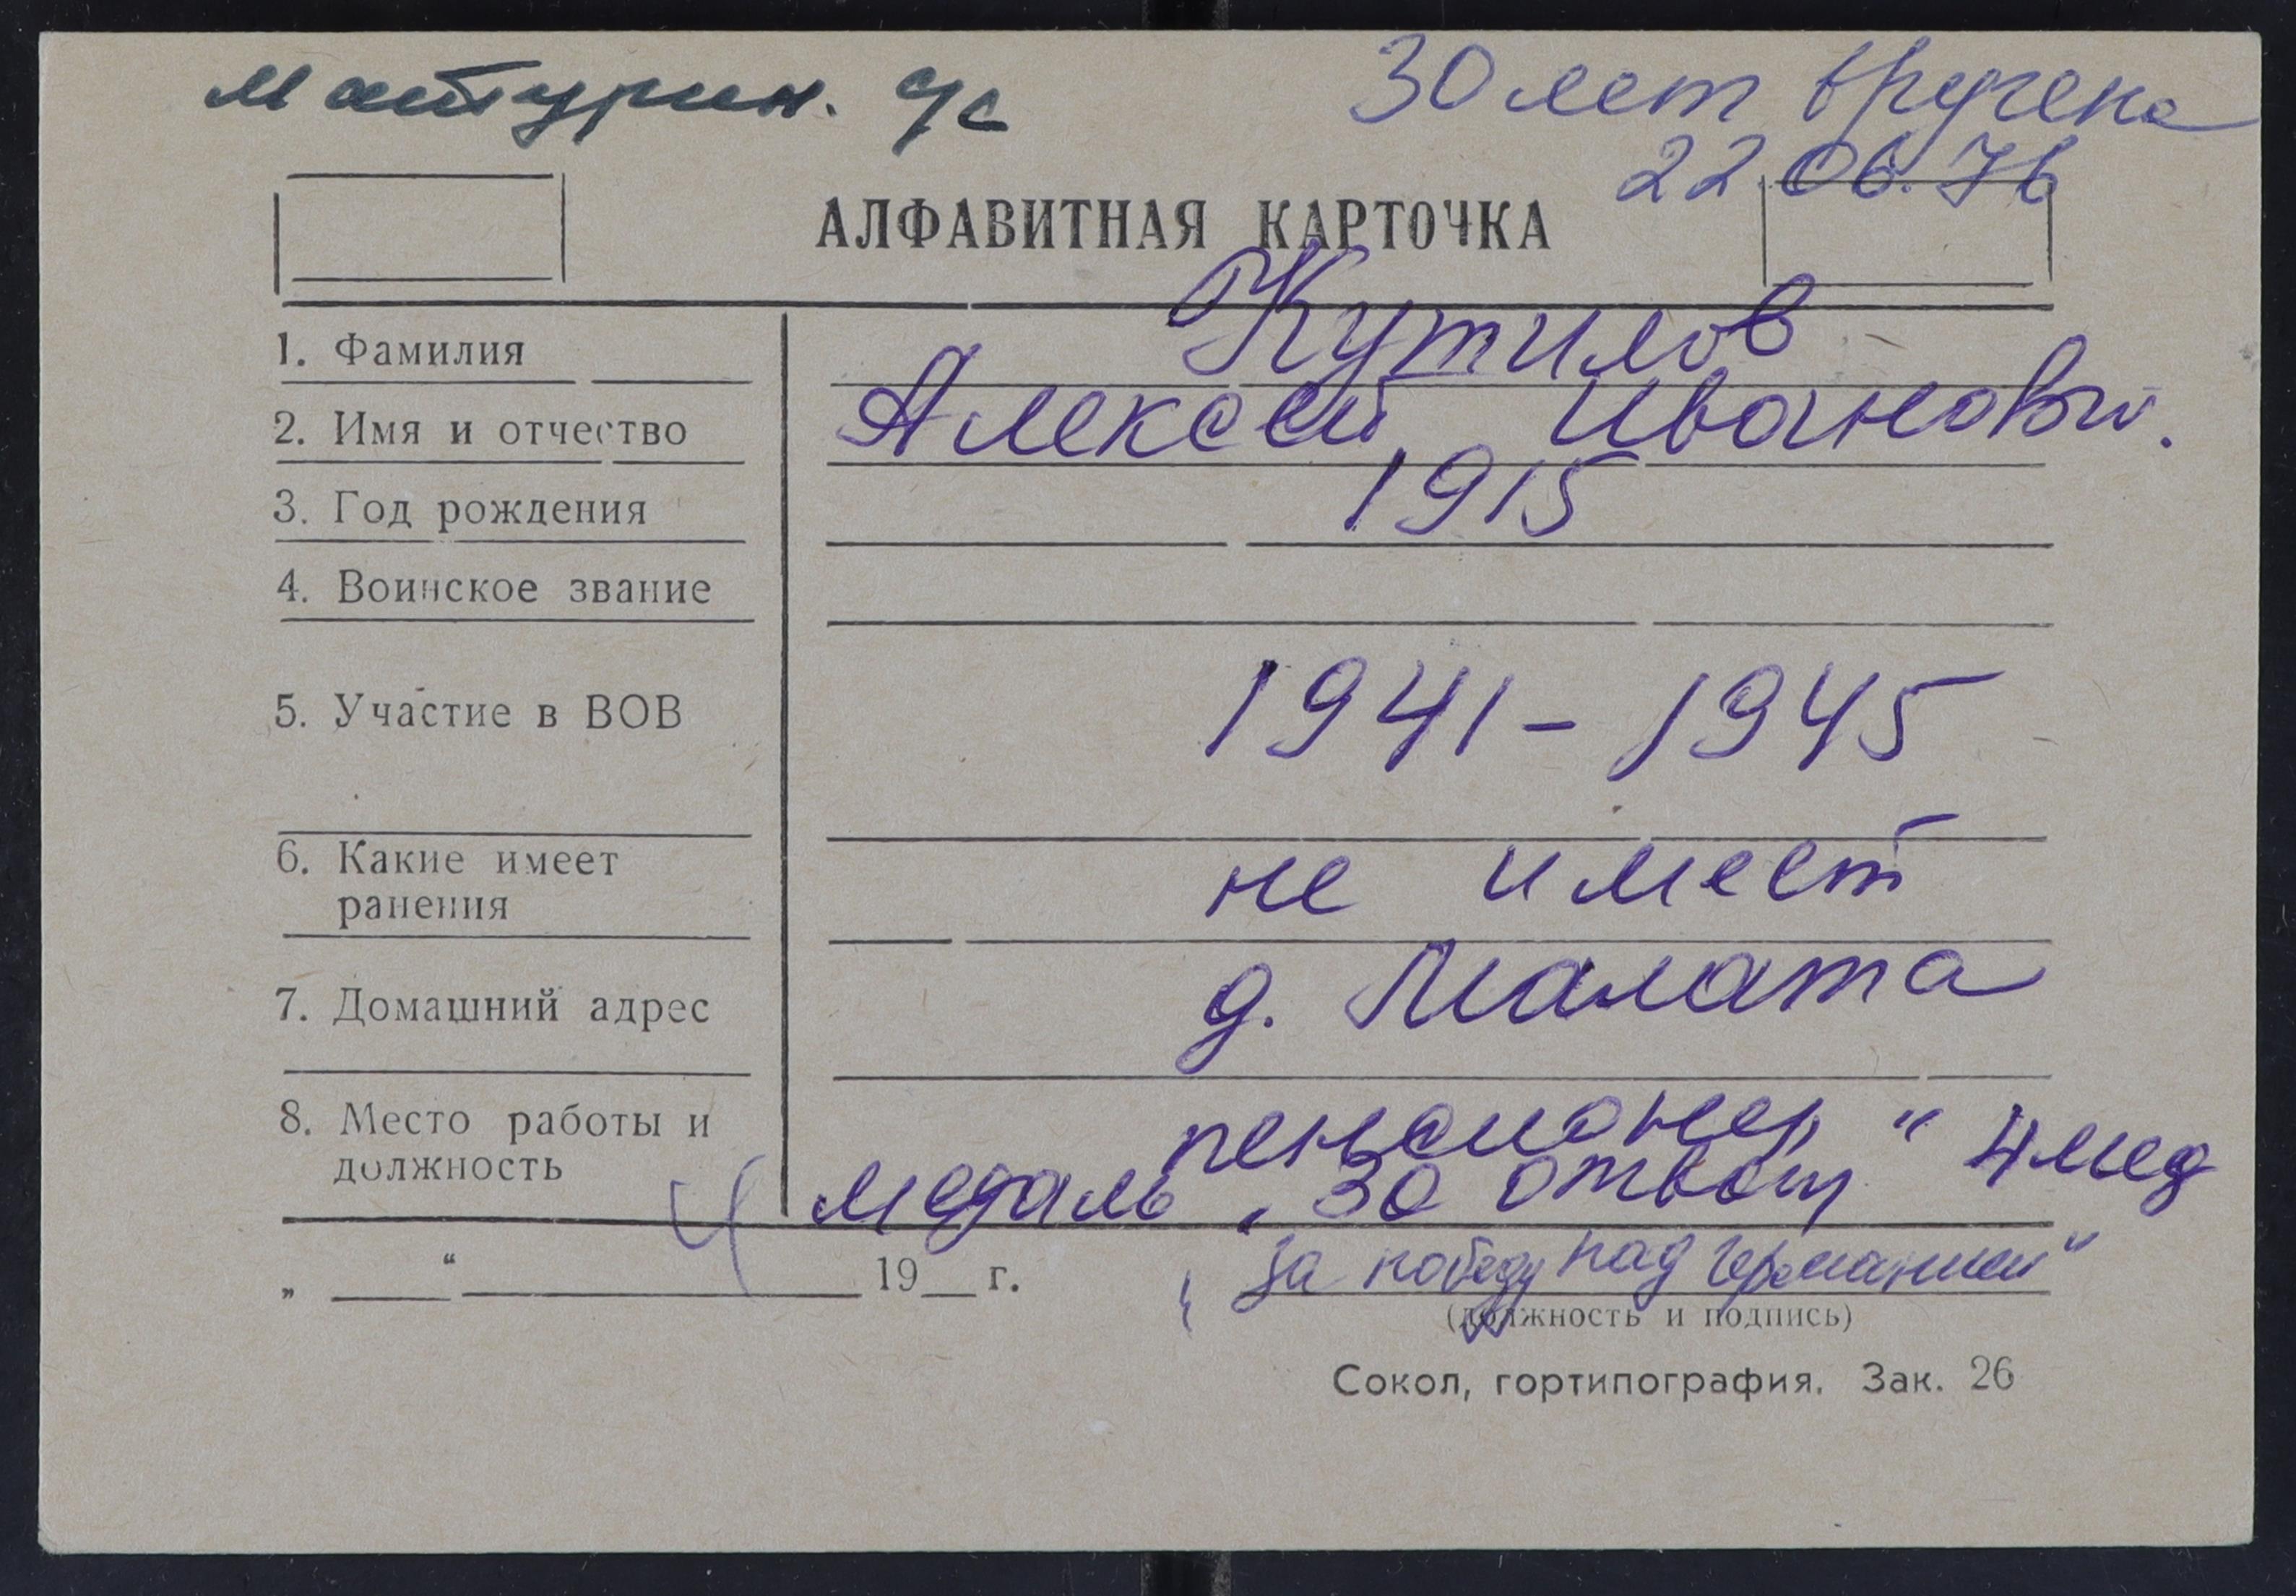 Матурин. с/с
30 лет вручена
22.06.76
АЛФАВИТНАЯ КАРТОЧКА
1. Фамилия Кутилов
2. Имя и отчество Алексей Иванович.
3. Год рождения 1915
4. Воинское звание
5. Участие в ВОВ 1941-1945
6. Какие имеет ранения не имеет
7. Домашний адрес д. Малата
8. Место работы и должность пенсионер
медаль „За отвагу" 4 мед
„За победу над Германией"
„ “ 19 г.
(должность и подпись)
Сокол, гортипография. Зак. 26